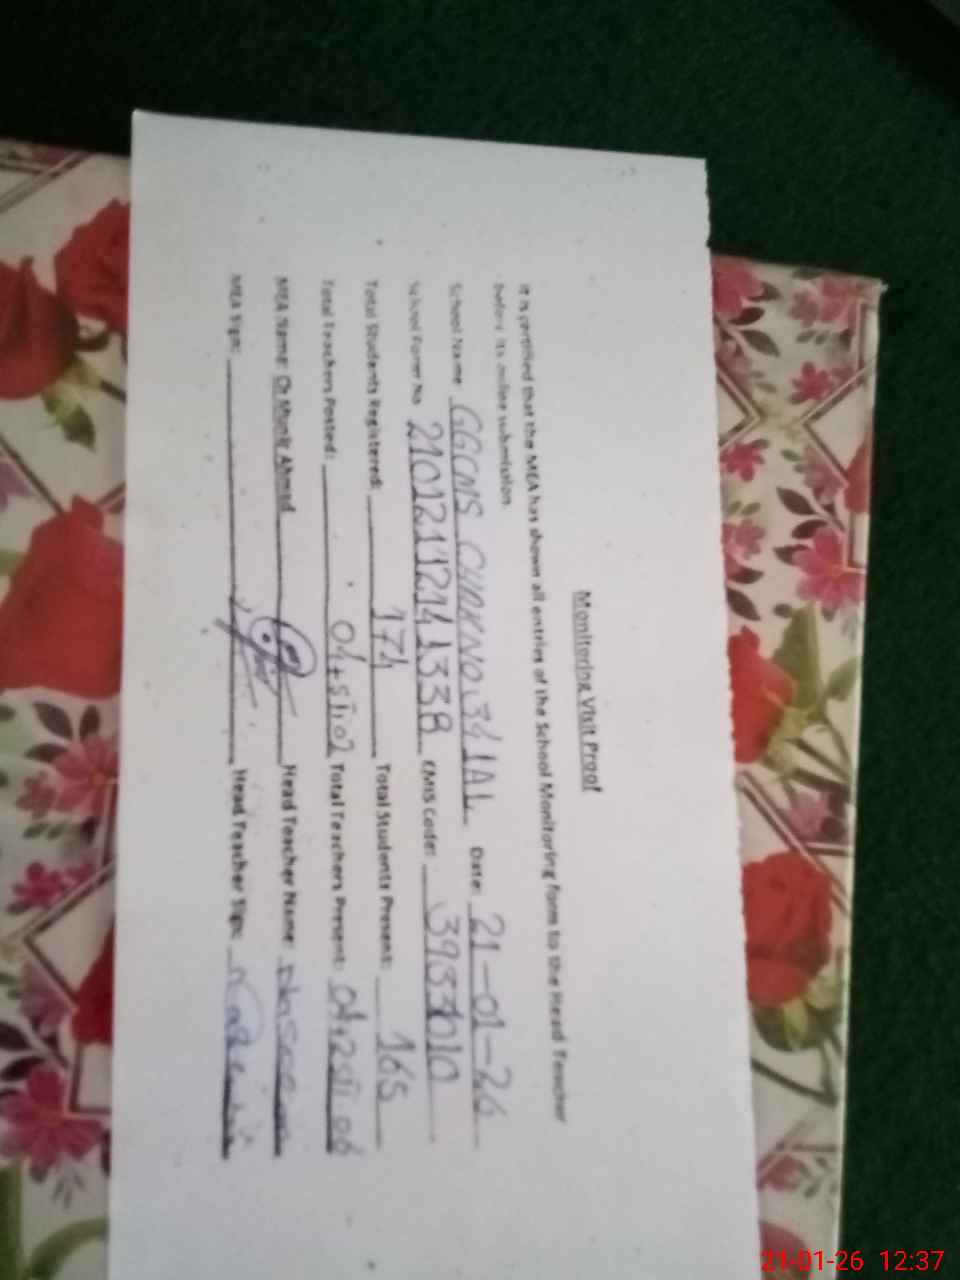 Monitoring Visit Proof
It is certified that the MEA has shown all entries of the School Monitoring form to the Head Teacher
before its online submission.
School Name GGCMS CHAKNO.34 1AL Date: 21-01-26
School Form No. 21012112141338 EMIS Code:
Total Students Registered: 174 Total Students Present: 165
Total Teachers Posted: Total Teachers Present:
MEA Name: Ch Monir Ahmad Head Teacher Name:
MEA Sign: Head Teacher Sign:
21-01-26 12:37